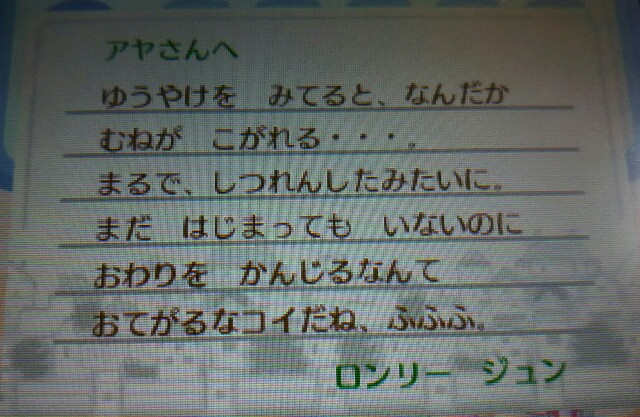 アヤさんへ
ゆうやけを　みてると、なんだか
むねが　こがれる・・・。
まるで、しつれんしたみたいに。
まだ　はじまっても　いないのに
おわりを　かんじるなんて
おてがるなコイだね、ふふふ。
ロンリー　ジュン